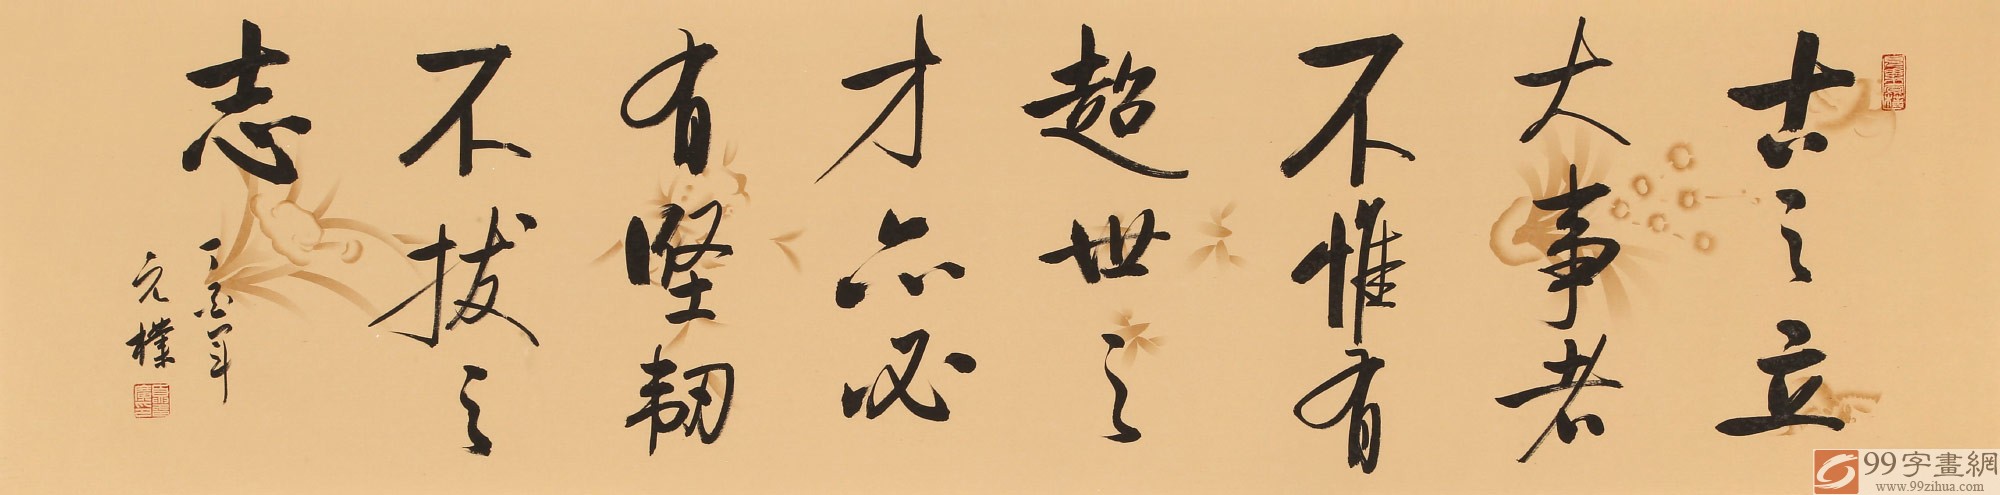 古之立
大事者
不惟有
超世之
才亦必
有堅韌
不拔之
志
丁酉年
元樸
99字畫網
www.99zihua.com